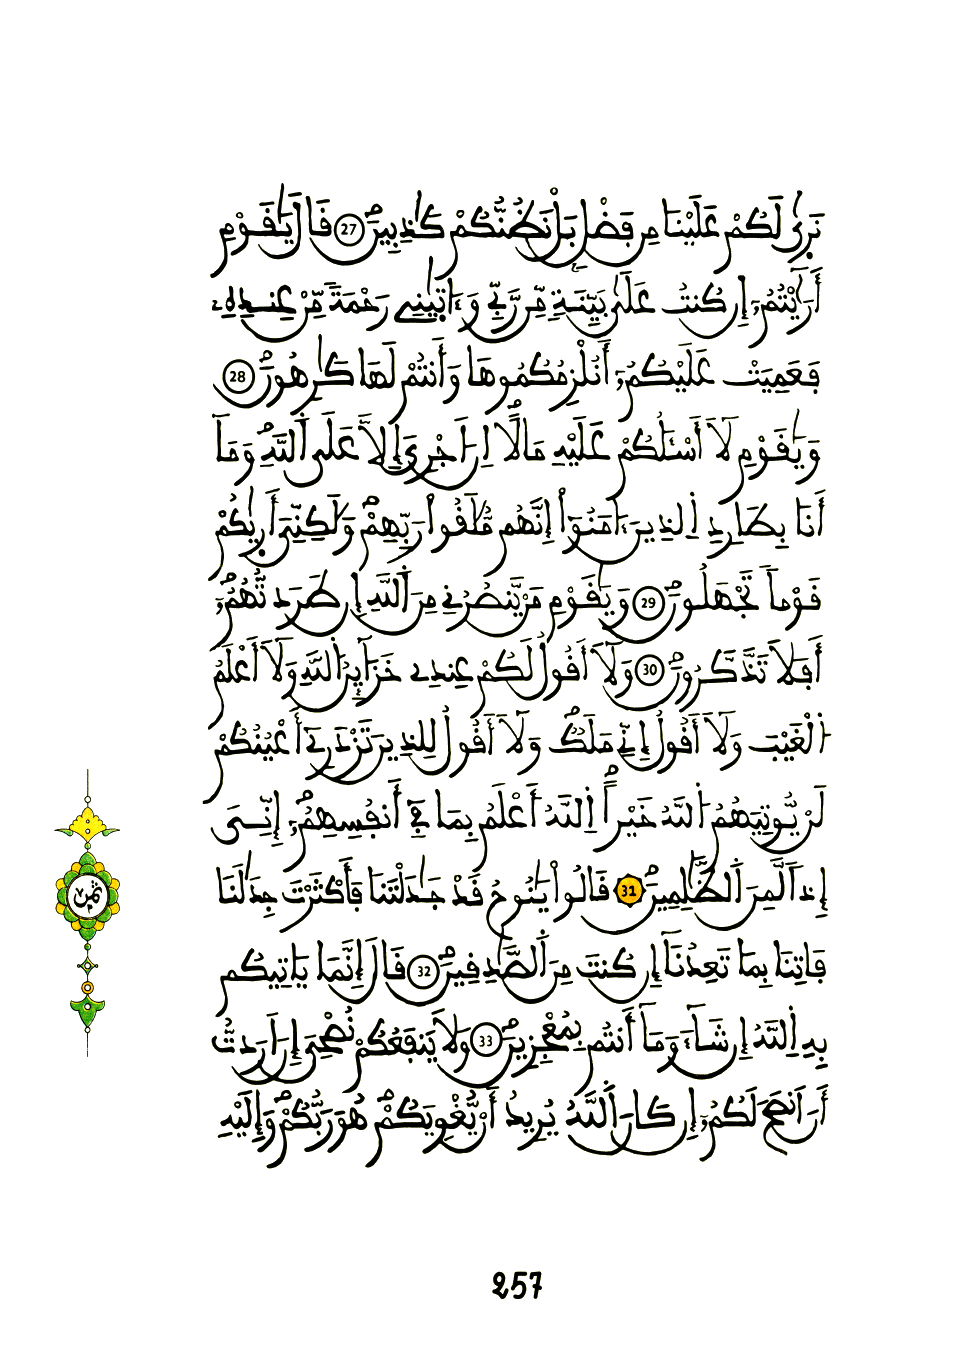 نَر۪يٰ لَكُمْ عَلَيْنَا مِن فَضْلِۢ بَلْ نَظُنُّكُمْ كَٰذِبِينَۖ 27 قَالَ يَٰقَوْمِ
أَرَٰٓيْتُمُۥٓ إِن كُنتُ عَلَىٰ بَيِّنَةٖ مِّن رَّبِّے وَءَاتٰينِے رَحْمَةٗ مِّنْ عِندِهِۦ
فَعَمِيَتْ عَلَيْكُمُۥٓ أَنُلْزِمُكُمُوهَا وَأَنتُمْ لَهَا كَٰرِهُونَۖ 28
وَيَٰقَوْمِ لَآ أَسْـَٔلُكُمْ عَلَيْهِ مَالًاۖ اِنَ اَجْرِيَ إِلَّا عَلَى اَ۬للَّهِۖ وَمَآ
أَنَا بِطَارِدِ اِ۬لذِينَ ءَامَنُوٓاْۖ إِنَّهُم مُّلَٰقُواْ رَبِّهِمْۖ وَلَٰكِنِّيَ أَر۪يٰكُمْ
قَوْماٗ تَجْهَلُونَۖ 29 وَيَٰقَوْمِ مَنْ يَّنصُرُنِے مِنَ اَ۬للَّهِ إِن طَرَدتُّهُمُۥٓۖ
أَفَلَا تَذَّكَّرُونَۖ 30 وَلَآ أَقُولُ لَكُمْ عِندِے خَزَآئِنُ اُ۬للَّهِ وَلَآ أَعْلَمُ
اُ۬لْغَيْبَ وَلَآ أَقُولُ إِنِّے مَلَكٞۖ وَلَآ أَقُولُ لِلذِينَ تَزْدَرِےٓ أَعْيُنُكُمْ
لَنْ يُّوتِيَهُمُ اُ۬للَّهُ خَيْراًۖ اِ۬للَّهُ أَعْلَمُ بِمَا فِےٓ أَنفُسِهِمُۥٓۖ إِنِّيَ
إِذاٗ لَّمِنَ اَ۬لظَّٰلِمِينَۖ 31 قَالُواْ يَٰنُوحُ قَدْ جَٰدَلْتَنَا فَأَكْثَرْتَ جِدَٰلَنَا
فَاتِنَا بِمَا تَعِدُنَآ إِن كُنتَ مِنَ اَ۬لصَّٰدِقِينَۖ 32 قَالَ إِنَّمَا يَاتِيكُم
بِهِ اِ۬للَّهُ إِن شَآءَ وَمَآ أَنتُم بِمُعْجِزِينَۖ 33 وَلَا يَنفَعُكُمْ نُصْحِيَ إِنَ اَرَدتُّ
أَنَ اَنصَحَ لَكُمُۥٓ إِن كَانَ اَ۬للَّهُ يُرِيدُ أَنْ يُّغْوِيَكُمْۖ هُوَ رَبُّكُمْۖ وَإِلَيْهِ
ثمن
257